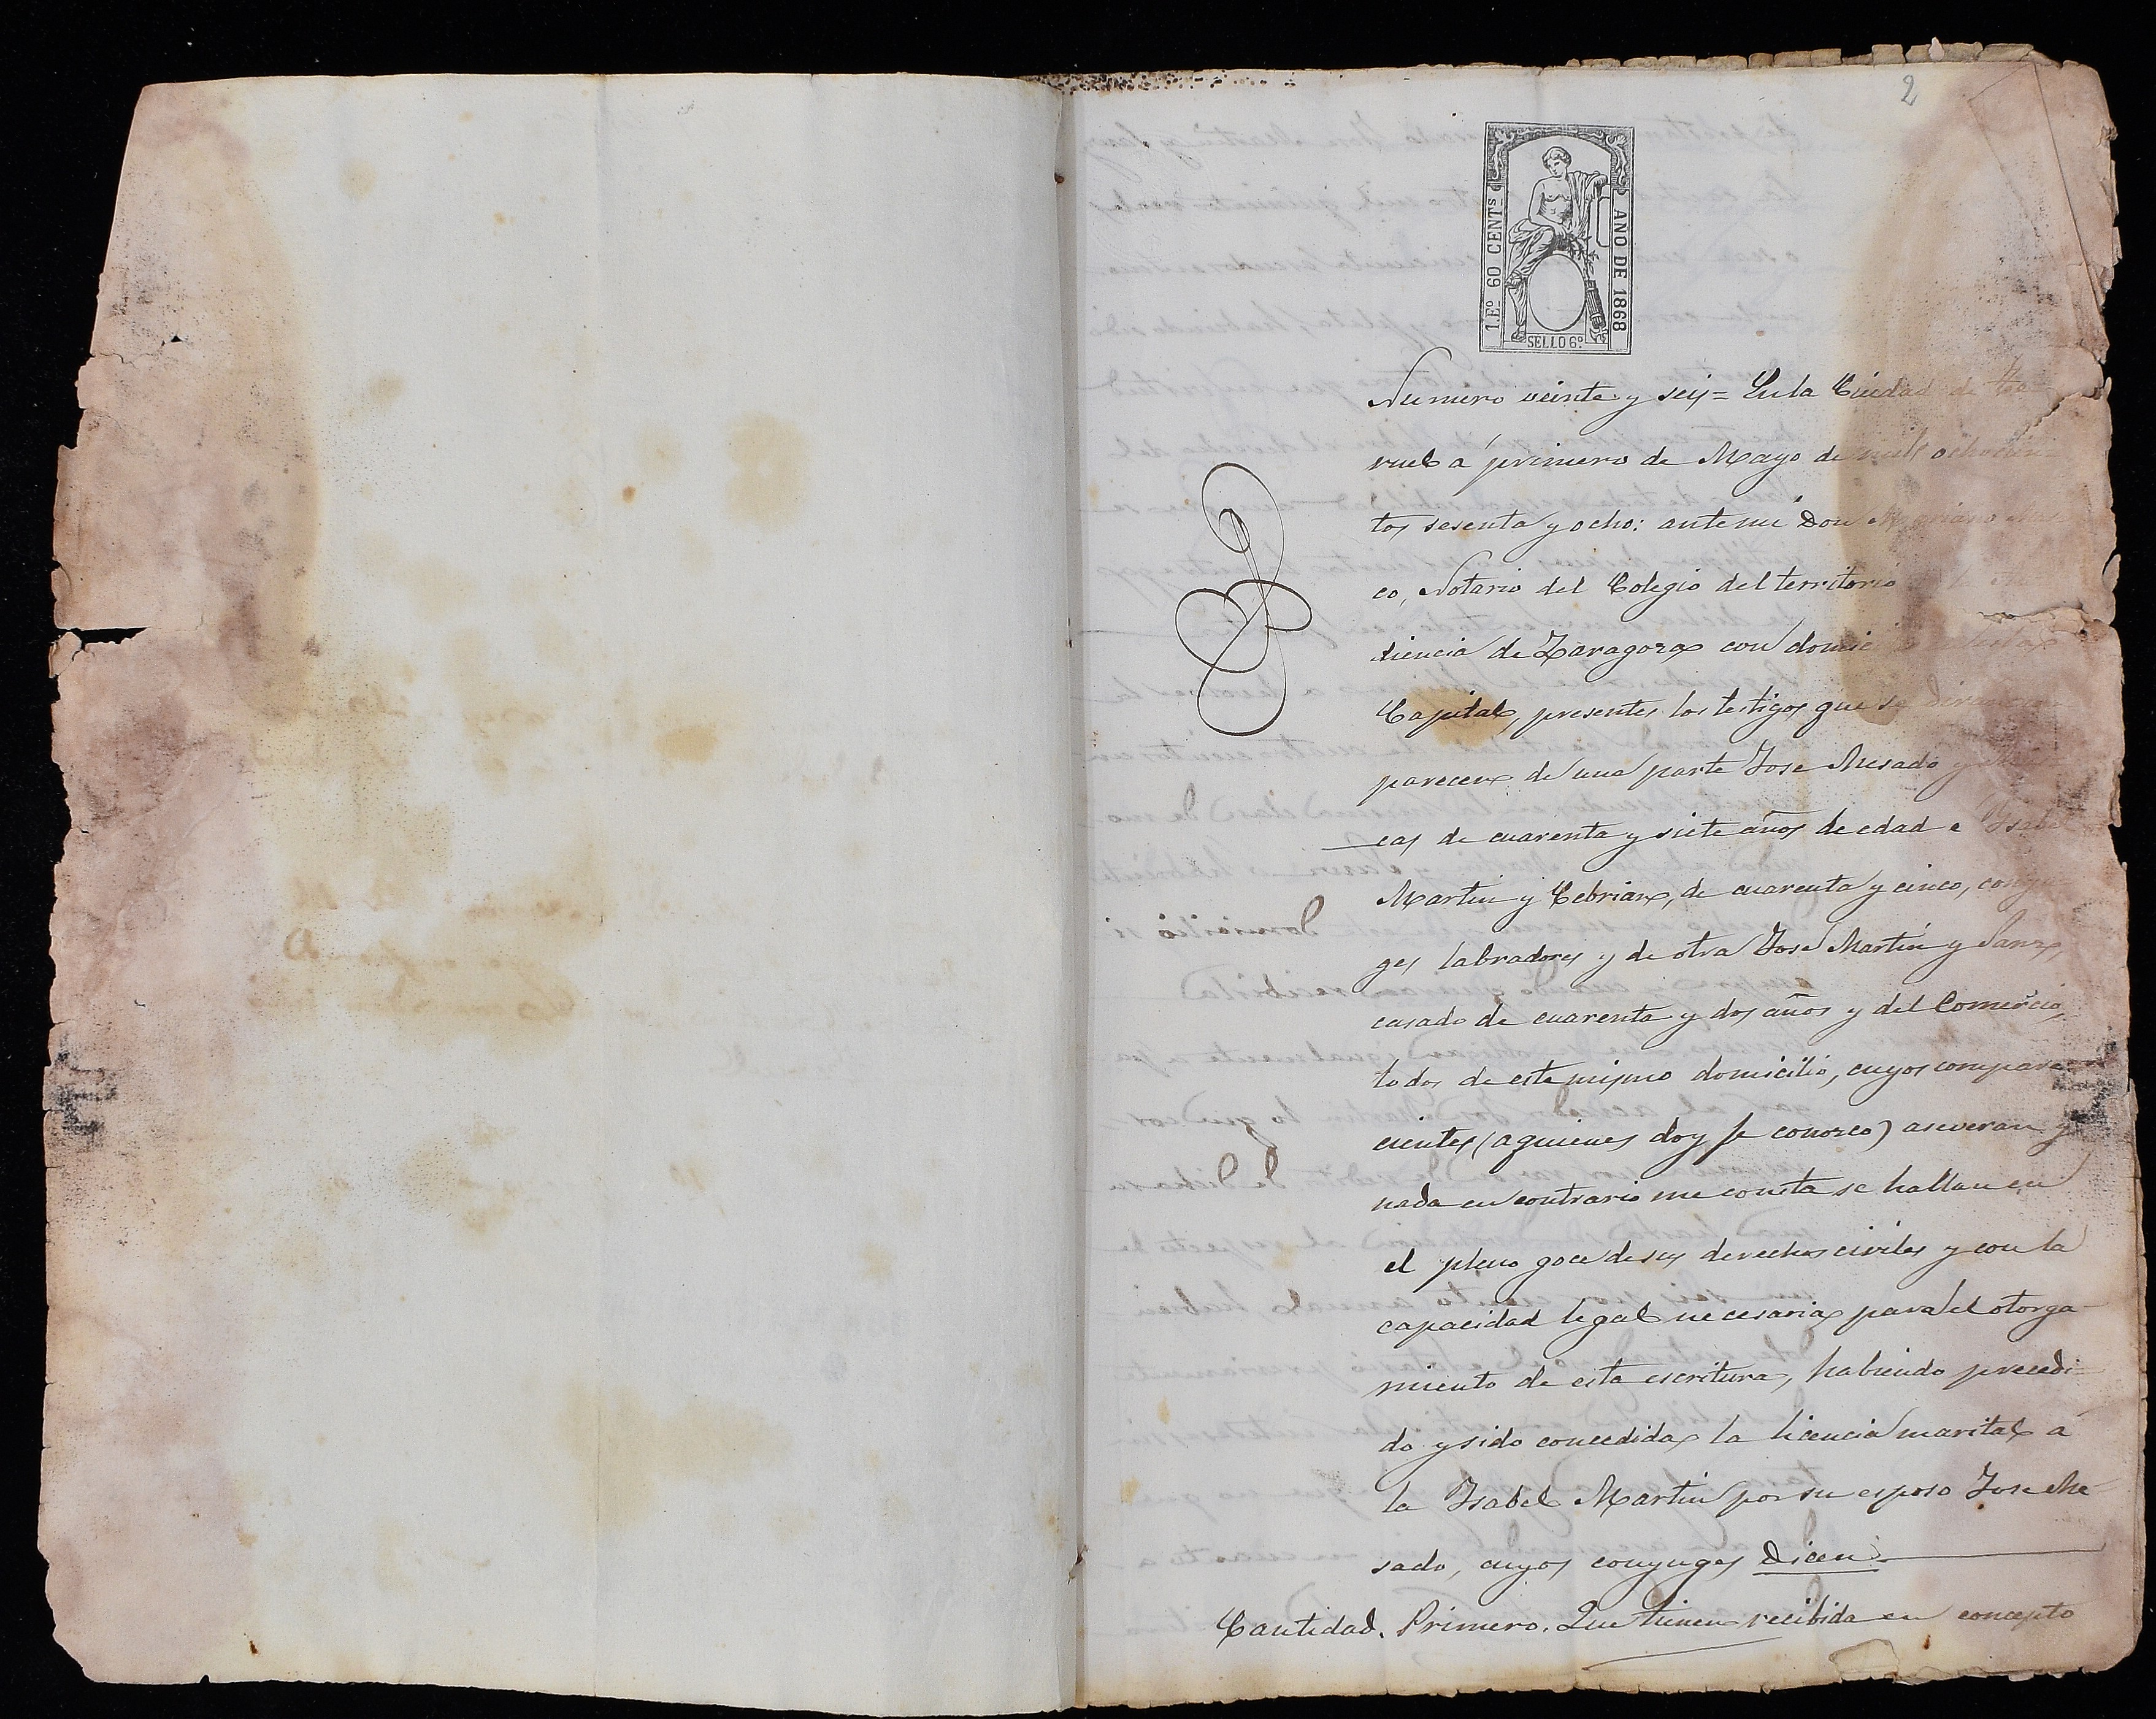 2
1.Eº 60 CENTs
AÑO DE 1868
SELLO 6º
Numero veinte y seis = En la Ciudad de Te-
ruel á primero de Mayo de mil ochocien-
tos sesenta y ocho: ante mi Don Mariano
co, Notario del Colegio del territorio
diencia de Zaragoza con domicilio
Capital, presentes los testigos que se diran com
parecen de una parte Jose Mesado y
cas de cuarenta y siete años de edad e Isabel
Martin y Cebrian, de cuarenta y cinco, conyu
ges labradores y de otra Jose Martin y Sanz,
casado de cuarenta y dos años y del Comercio,
todos de este mismo domicilio, cuyos compare
cientes (a quienes doy fe conozco) aseveran y
nada en contrario me consta se hallan en
el pleno goce de sus derechos civiles y con la
capacidad legal necesaria para el otorga-
miento de esta escritura, habiendo precedi-
do y sido concedida la licencia marital á
la Isabel Martin por su esposo Jose Me-
sado, cuyos conyuges dicen
Cantidad. Primero. Que tienen recibida en concepto